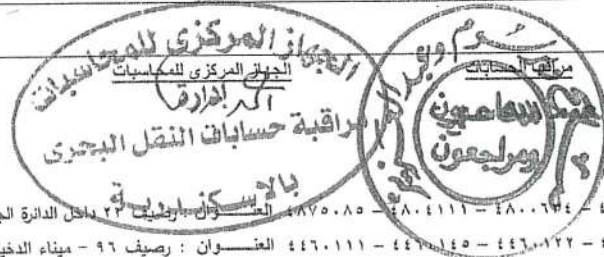 مراقبا الحسابات
الجهاز المركزي للمحاسبات
الجهاز المركزي للمحاسبات
إدارة
مراقبة حسابات النقل البحرى
بالإسكندرية
محاسبون
ومراجعون
٤٨٠٠٦٣٤ – ٤٨٠٤١١١ – ٤٨٧٥٠٨٥ العنـــوان رصيف ٢٢ داخل الدائرة
٤٤٦٠١٢٢ – ٤٤٦٠١٤٥ – ٤٤٦٠١١١ العنـــوان : رصيف ٩٦ – ميناء الدخيلة